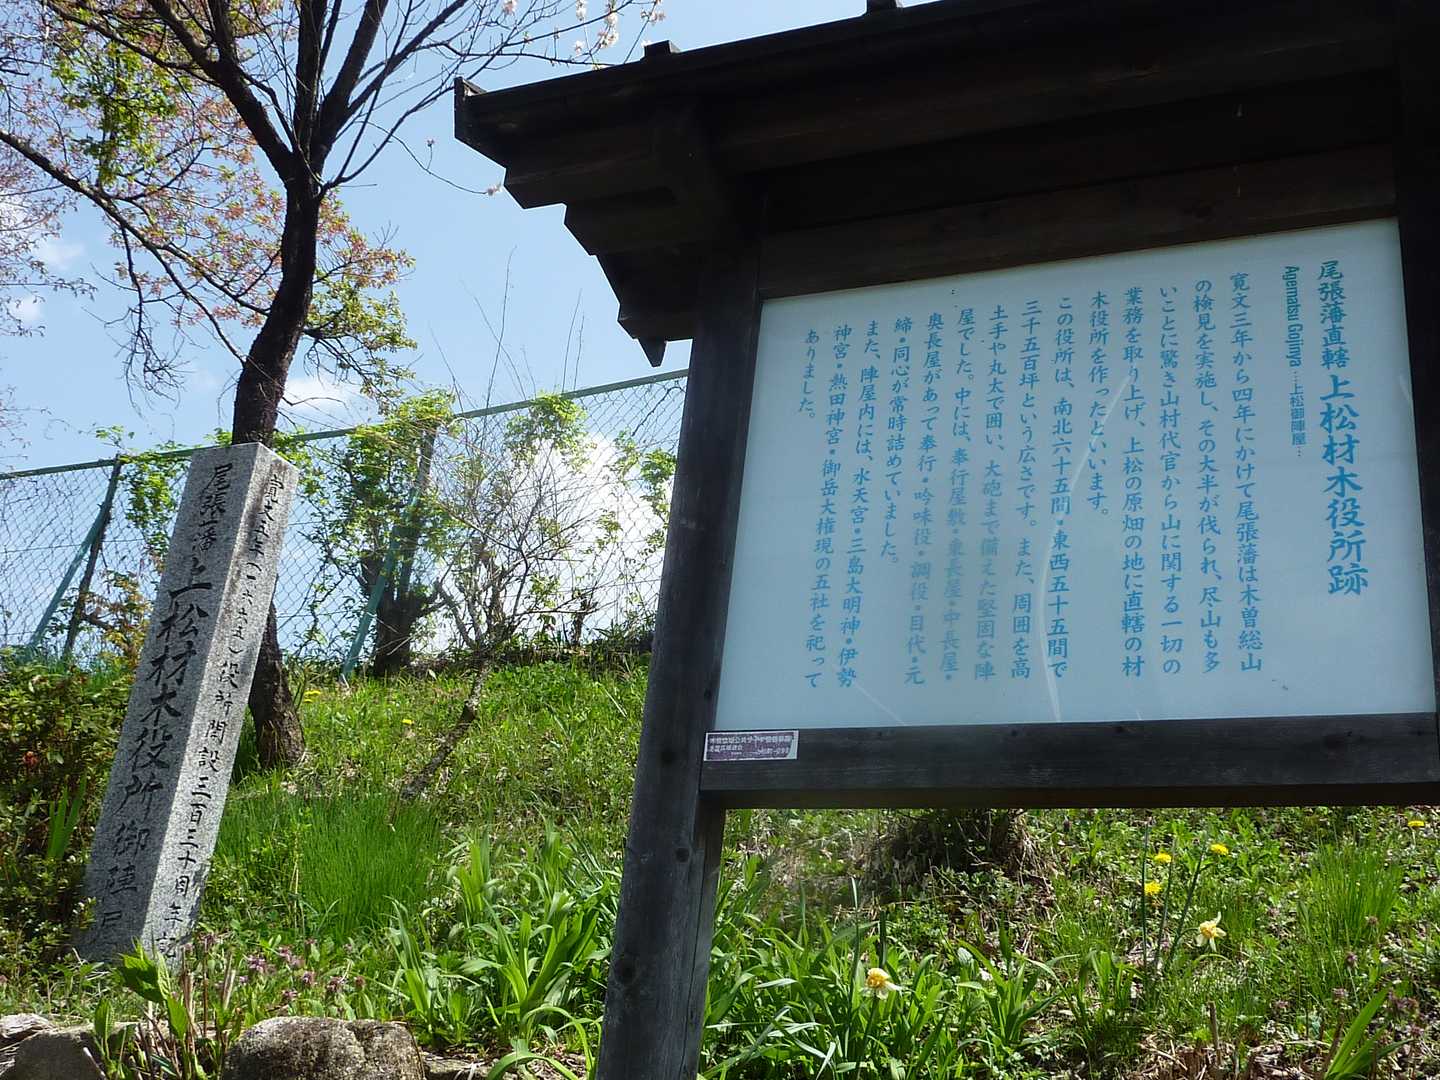 尾張藩直轄 上松材木役所跡
Agematsu Gojinya ……上松御陣屋…
寛文三年から四年にかけて尾張藩は木曽総山
の検見を実施し、その大半が伐られ、尽山も多
いことに驚き山村代官から山に関する一切の
業務を取り上げ、上松の原畑の地に直轄の材
木役所を作ったといいます。
この役所は、南北六十五間・東西五十五間で
三千五百坪という広さです。また、周囲を高
土手や丸太で囲い、大砲まで備えた堅固な陣
屋でした。中には、奉行屋敷・東長屋・中長屋・
奥長屋があって奉行・吟味役・調役・目代・元
締・同心が常時詰めていました。
また、陣屋内には、水天宮・三島大明神・伊勢
神宮・熱田神宮・御岳大権現の五社を祀って
ありました。
尾張藩上松材木役所御陣屋
(一六六五)役所開設三百三十周年